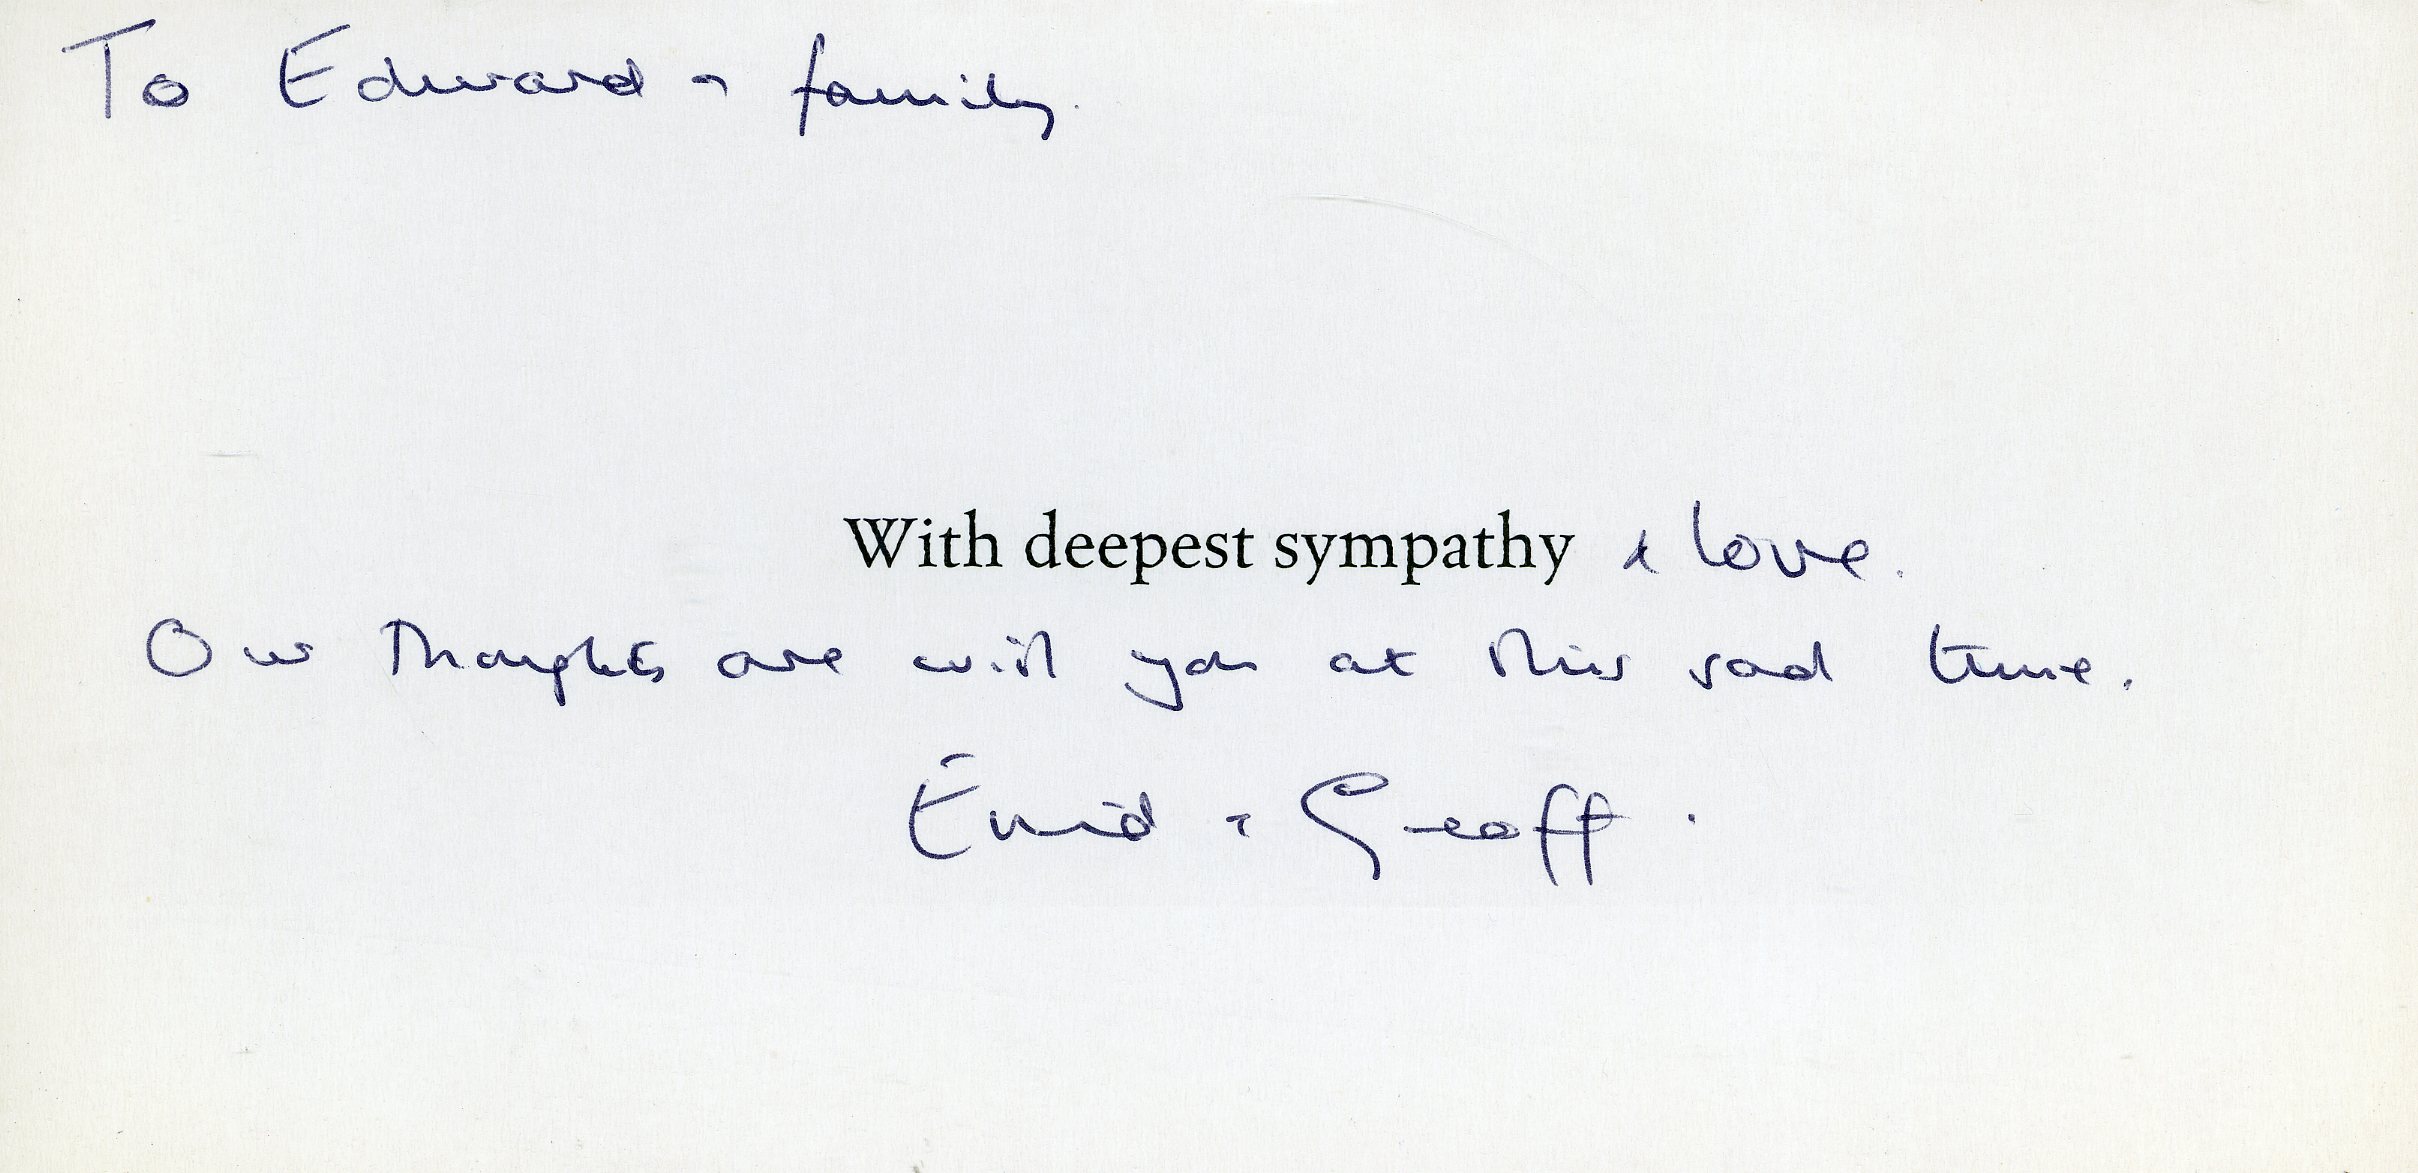 To Edward & family.
With deepest sympathy & love.
Our thoughts are with you at this sad time.
Enid & Geoff.